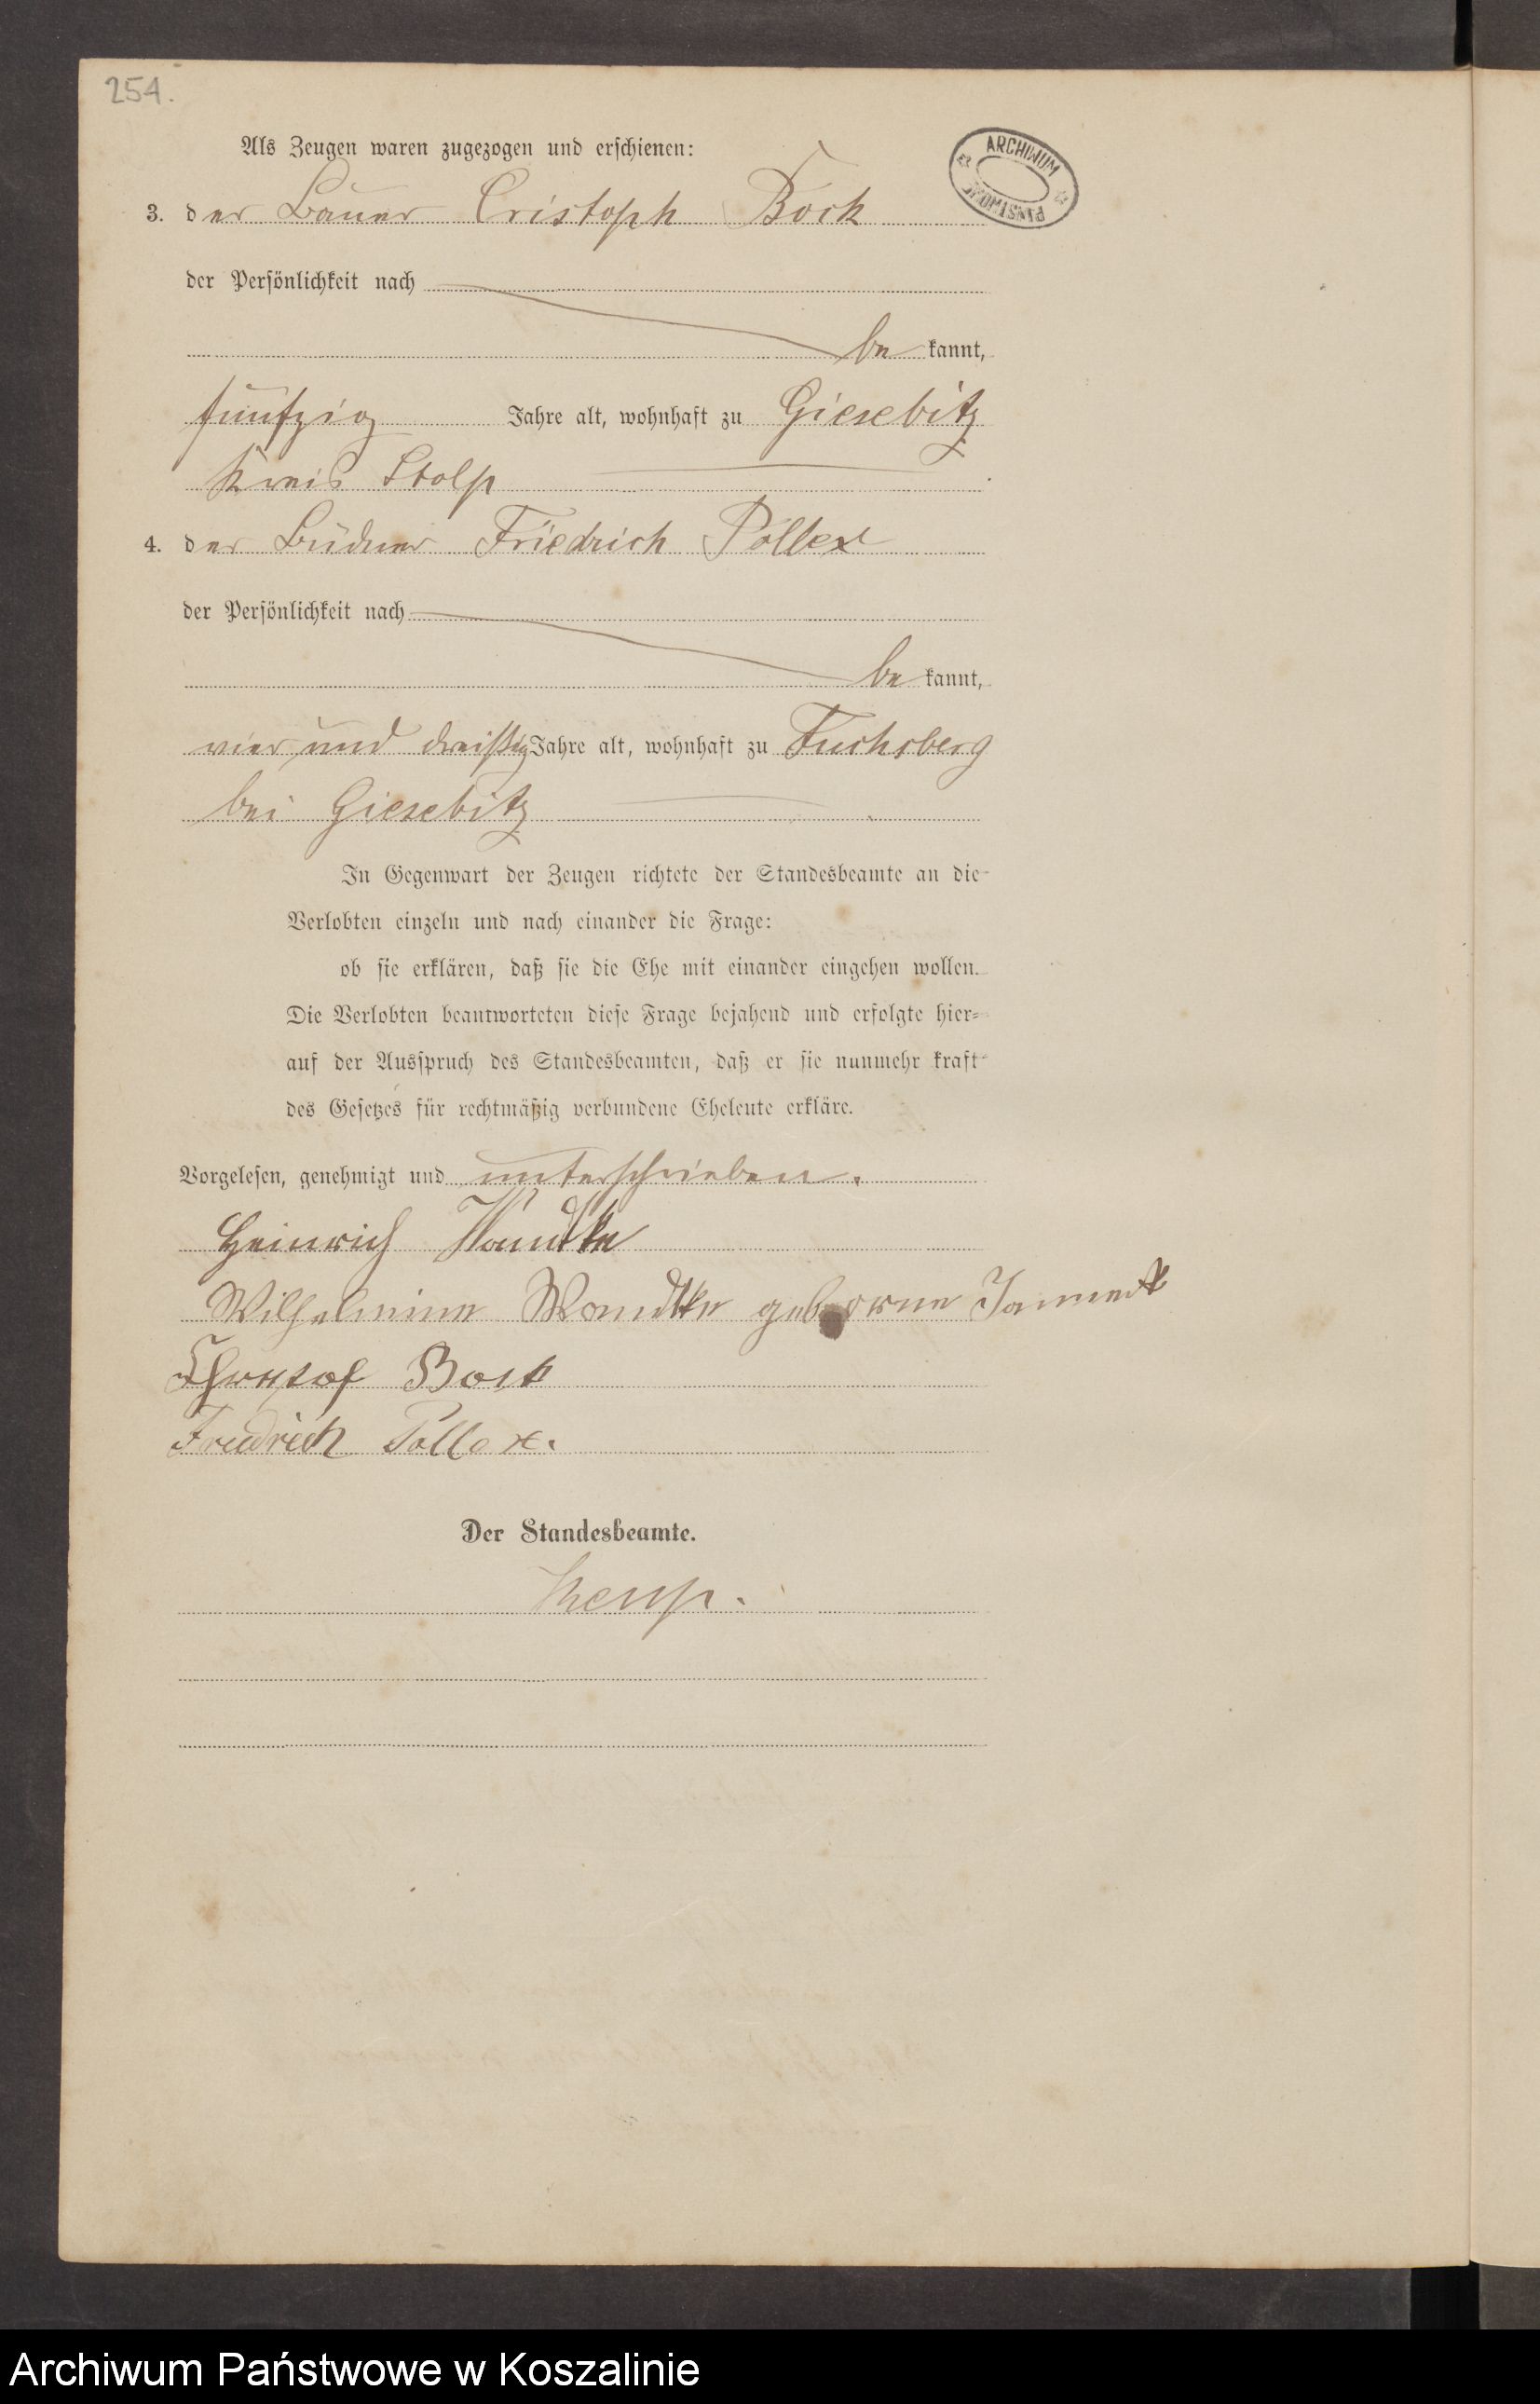 254.
Als Zeugen waren zugezogen und erschienen:
ARCHIWUM PAŃSTWOWE
3. der Bauer Cristoph Bock
der Persönlichkeit nach
be kannt,
fünfzig Jahre alt, wohnhaft zu Giesebitz
Kreis Stolp
4. der Büdner Friedrich Pollex
der Persönlichkeit nach
be kannt,
vier und dreißig Jahre alt, wohnhaft zu Fuchsberg
bei Giesebitz
In Gegenwart der Zeugen richtete der Standesbeamte an die
Verlobten einzeln und nach einander die Frage:
ob sie erklären, daß sie die Ehe mit einander eingehen wollen.
Die Verlobten beantworteten diese Frage bejahend und erfolgte hier-
auf der Ausspruch des Standesbeamten, daß er sie nunmehr kraft
des Gesetzes für rechtmäßig verbundene Eheleute erkläre.
Vorgelesen, genehmigt und unterschrieben.
Heinrich Wandtke
Wilhelmine Wandtke geborne
Bock
Friedrich Pollex.
Der Standesbeamte.
Archiwum Państwowe w Koszalinie